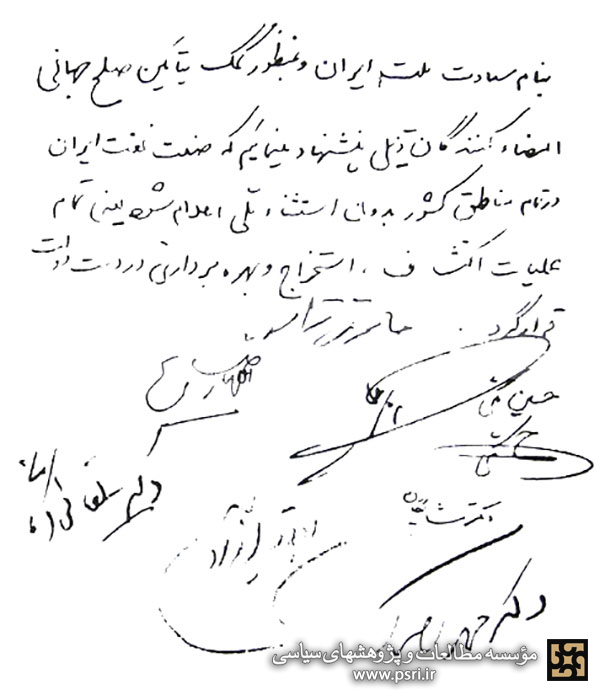 بنام سعادت ملت ایران و بمنظور کمک بتأمین صلح جهانی
امضاء کنندگان ذیل پیشنهاد مینمائیم که صنعت نفت ایران
در تمام مناطق کشور بدون استثناء ملی اعلام شود یعنی تمام
عملیات اکتشاف، استخراج و بهره برداری در دست دولت
قرار گیرد.
اللهیار صالح
حسین مکی
دکتر شایگان
دکتر
مؤسسه مطالعات و پژوهشهای سیاسی
www.psri.ir